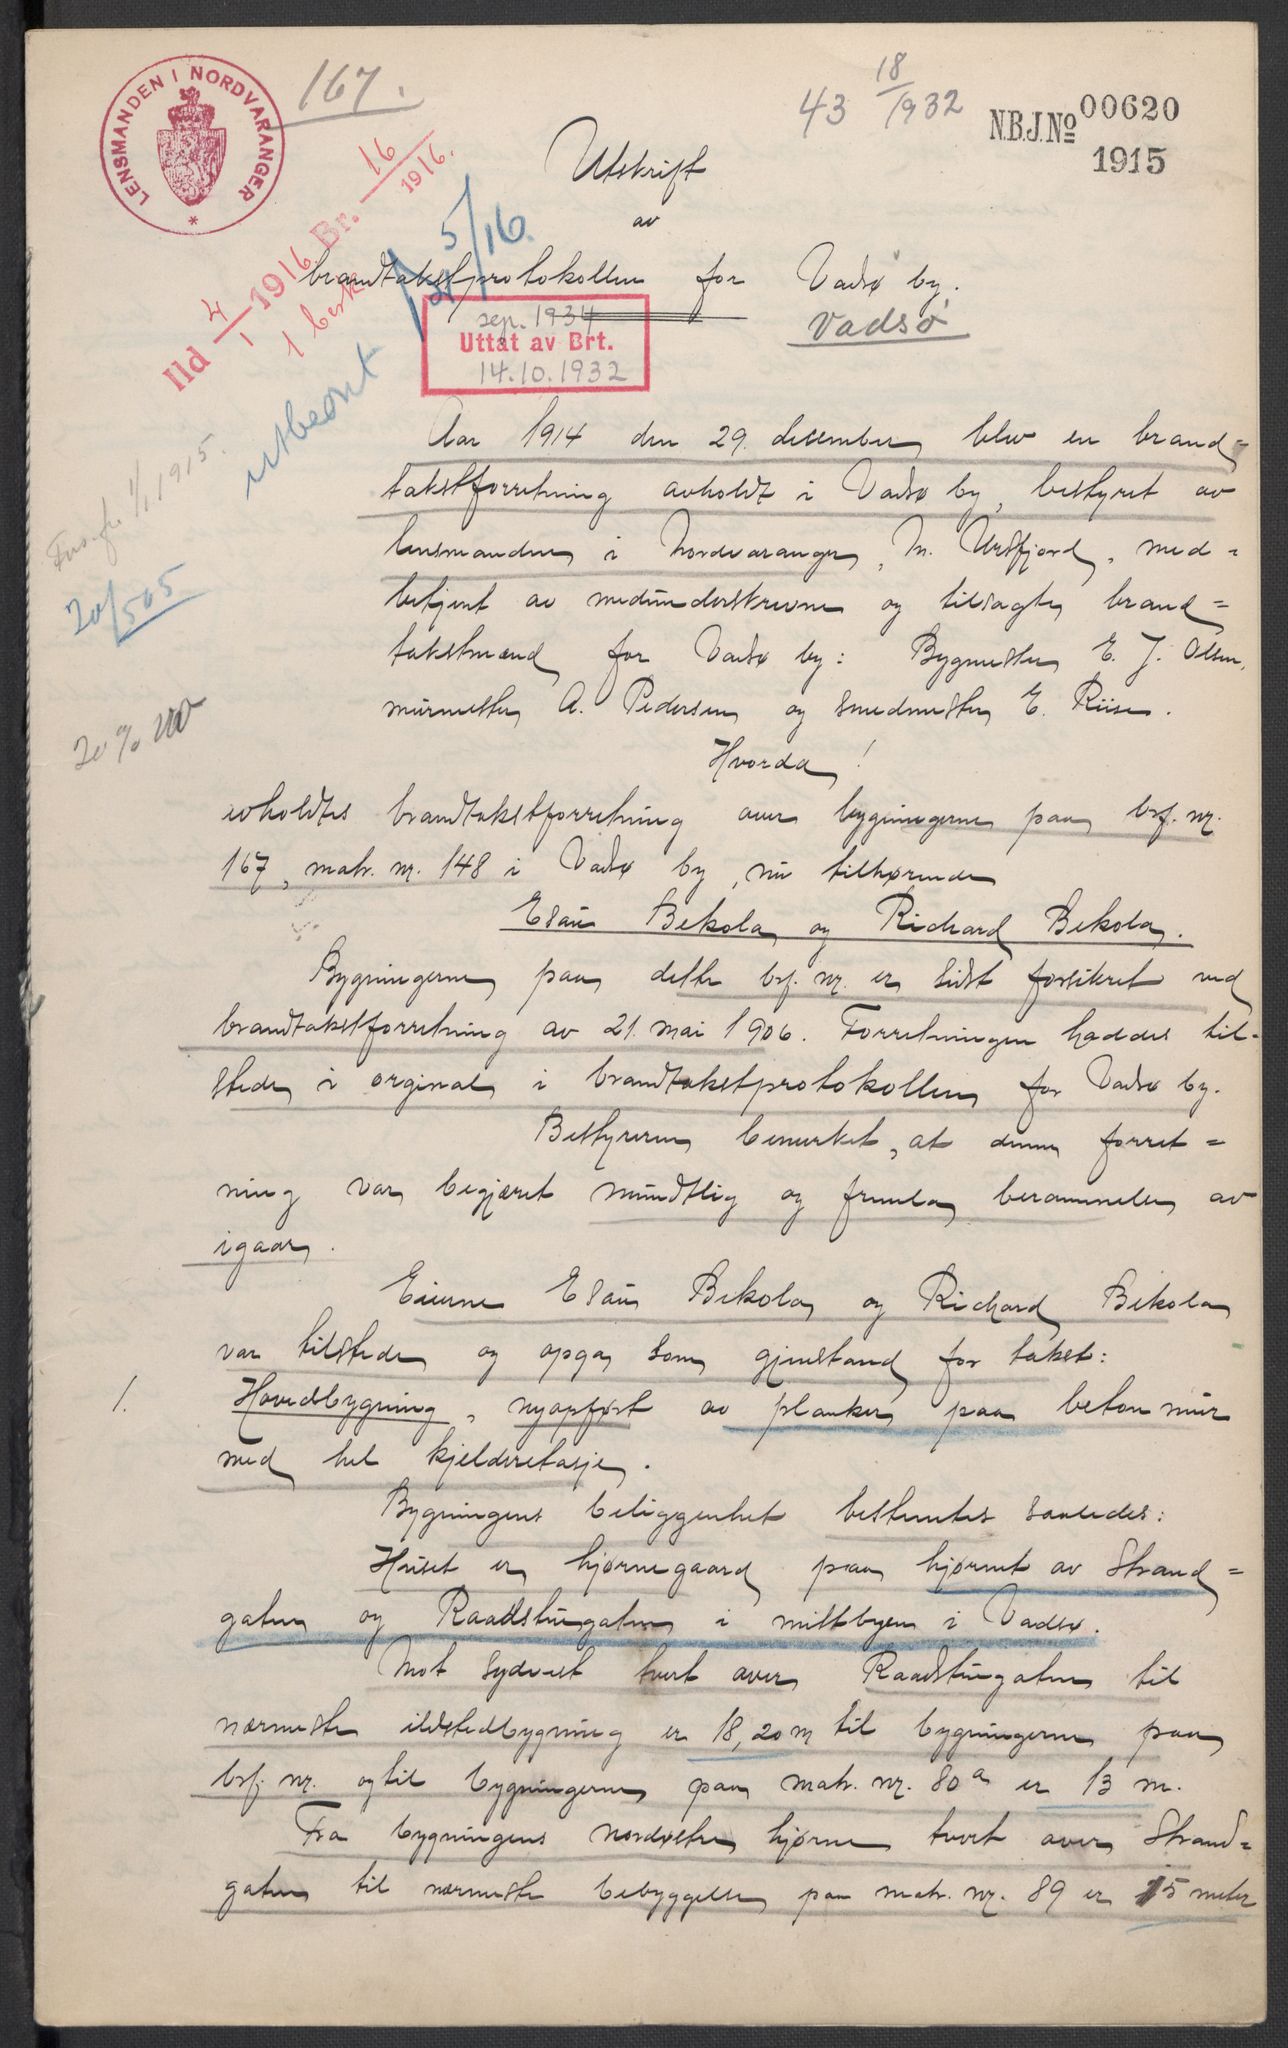 LENSMANDEN I NORDVARANGER
167.
43 18/1932
N.B.J.No 00620
1915
Utskrift
av
brandtakstprotokollen for Vadsø by.
Vadsø
Ild 4/1 1916 Br. 16/1916.
1 besk
utbetont 5/16.
sep. 1934
Uttat av Brt.
14.10.1932
1/1 1915.
20/505
20%
Aar 1914 den 29. december blev en brand=
takstforretning avholdt i Vadsø by, bestyret av
lensmanden i Nordvaranger, M. Ursfjord, med-
betjent av medunderskrevne og tilsagte brand=
takstmænd for Vadsø by: Bygmester E. J. Olsen,
murmester A. Pedersen og smedmester E. Riise.
Hvorda!
avholdtes brandtakstforretning over bygningerne paa brf. nr.
167, matr. nr. 148 i Vadsø by, nu tilhørende
Esau Bekola og Richard Bekola.
Bygningerne paa dette brf. nr. er sidst forsikret ved
brandtakstforretning av 21. mai 1906. Forretningen haddes til-
stede i orginal i brandtakstprotokollen for Vadsø by.
Bestyreren bemerket, at denne forret=
ning var begjæret mundtlig og fremla berammelse av
igaar.
Eierne Esau Bekola og Richard Bekola
var tilstede og opga som gjenstand for takst:
1. Hovedbygning, nyopført av planker paa beton mur
med hel kjelderetasje.
Bygningens beliggenhet bestemtes saaledes:
Huset er hjørnegaard paa hjørnet av Strand=
gaten og Raadstugaten i mittbyen i Vadsø.
Mot sydvest tvert over Raadstugaten til
nærmeste ildstedbygning er 18,20 m til bygningerne paa
brf. nr. og til bygningerne paa matr. nr. 80a er 13 m.
Fra bygningens nordvestre hjørne tvert over Strand=
gaten til nærmeste bebyggelse paa matr. nr. 89 er 15 meter